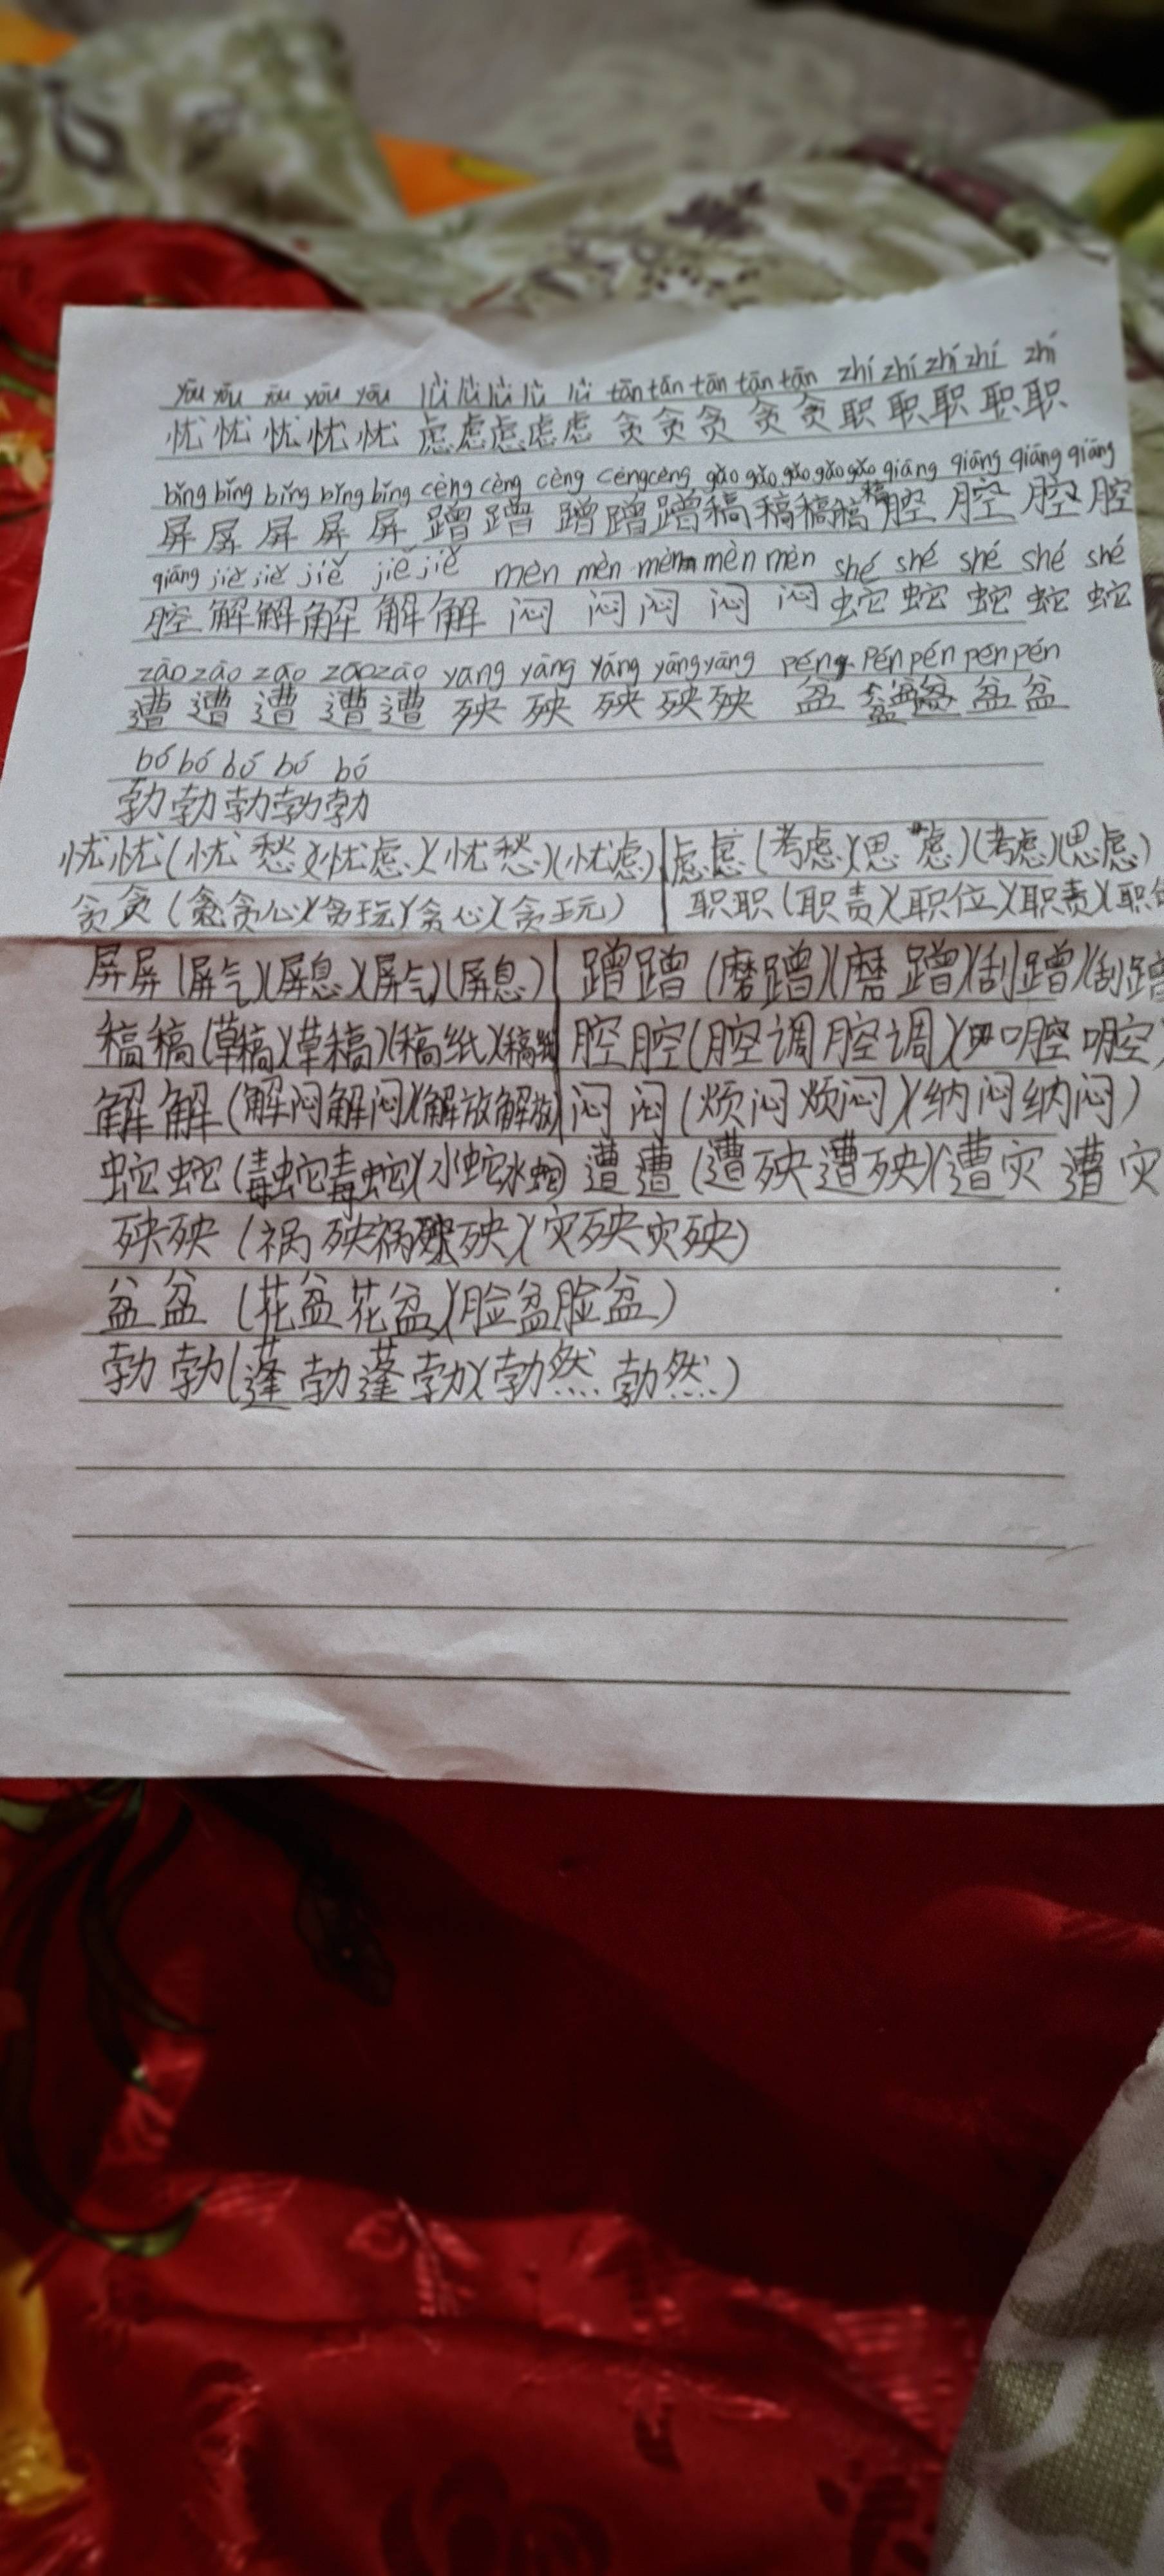 yōu yōu yōu yōu yōu lǜ lǜ lǜ lǜ lǜ tān tān tān tān tān zhí zhí zhí zhí zhí
忧忧忧忧忧虑虑虑虑虑贪贪贪贪贪职职职职职
bǐng bǐng bǐng bǐng bǐng cèng cèng cèng cèng cèng gǎo gǎo gǎo gǎo gǎo qiāng qiāng qiāng qiāng
屏屏屏屏屏蹭蹭蹭蹭蹭稿稿稿稿稿腔腔腔腔
qiāng jiě jiě jiě jiě jiě mèn mèn mèn mèn mèn shé shé shé shé shé
腔解解解解解闷闷闷闷闷蛇蛇蛇蛇蛇
zāo zāo zāo zāo zāo yāng yāng yāng yāng yāng pén pén pén pén pén
遭遭遭遭遭殃殃殃殃殃盆盆盆盆盆
bó bó bó bó bó
勃勃勃勃勃
忧忧(忧愁)(忧虑)(忧愁)(忧虑) 虑虑(考虑)(思虑)(考虑)(思虑)
贪贪(贪心)(贪玩)(贪心)(贪玩) 职职(职责)(职位)(职责)(职
屏屏(屏气)(屏息)(屏气)(屏息) 蹭蹭(磨蹭)(磨蹭)(刮蹭)(刮蹭
稿稿(草稿)(草稿)(稿纸)(稿纸 腔腔(腔调腔调)(口腔口腔)
解解(解闷解闷)(解放解放) 闷闷(烦闷烦闷)(纳闷纳闷)
蛇蛇(毒蛇毒蛇)(水蛇水蛇) 遭遭(遭殃遭殃)(遭灾遭灾
殃殃(祸殃祸殃)(灾殃灾殃)
盆盆(花盆花盆)(脸盆脸盆)
勃勃(蓬勃蓬勃)(勃然勃然)